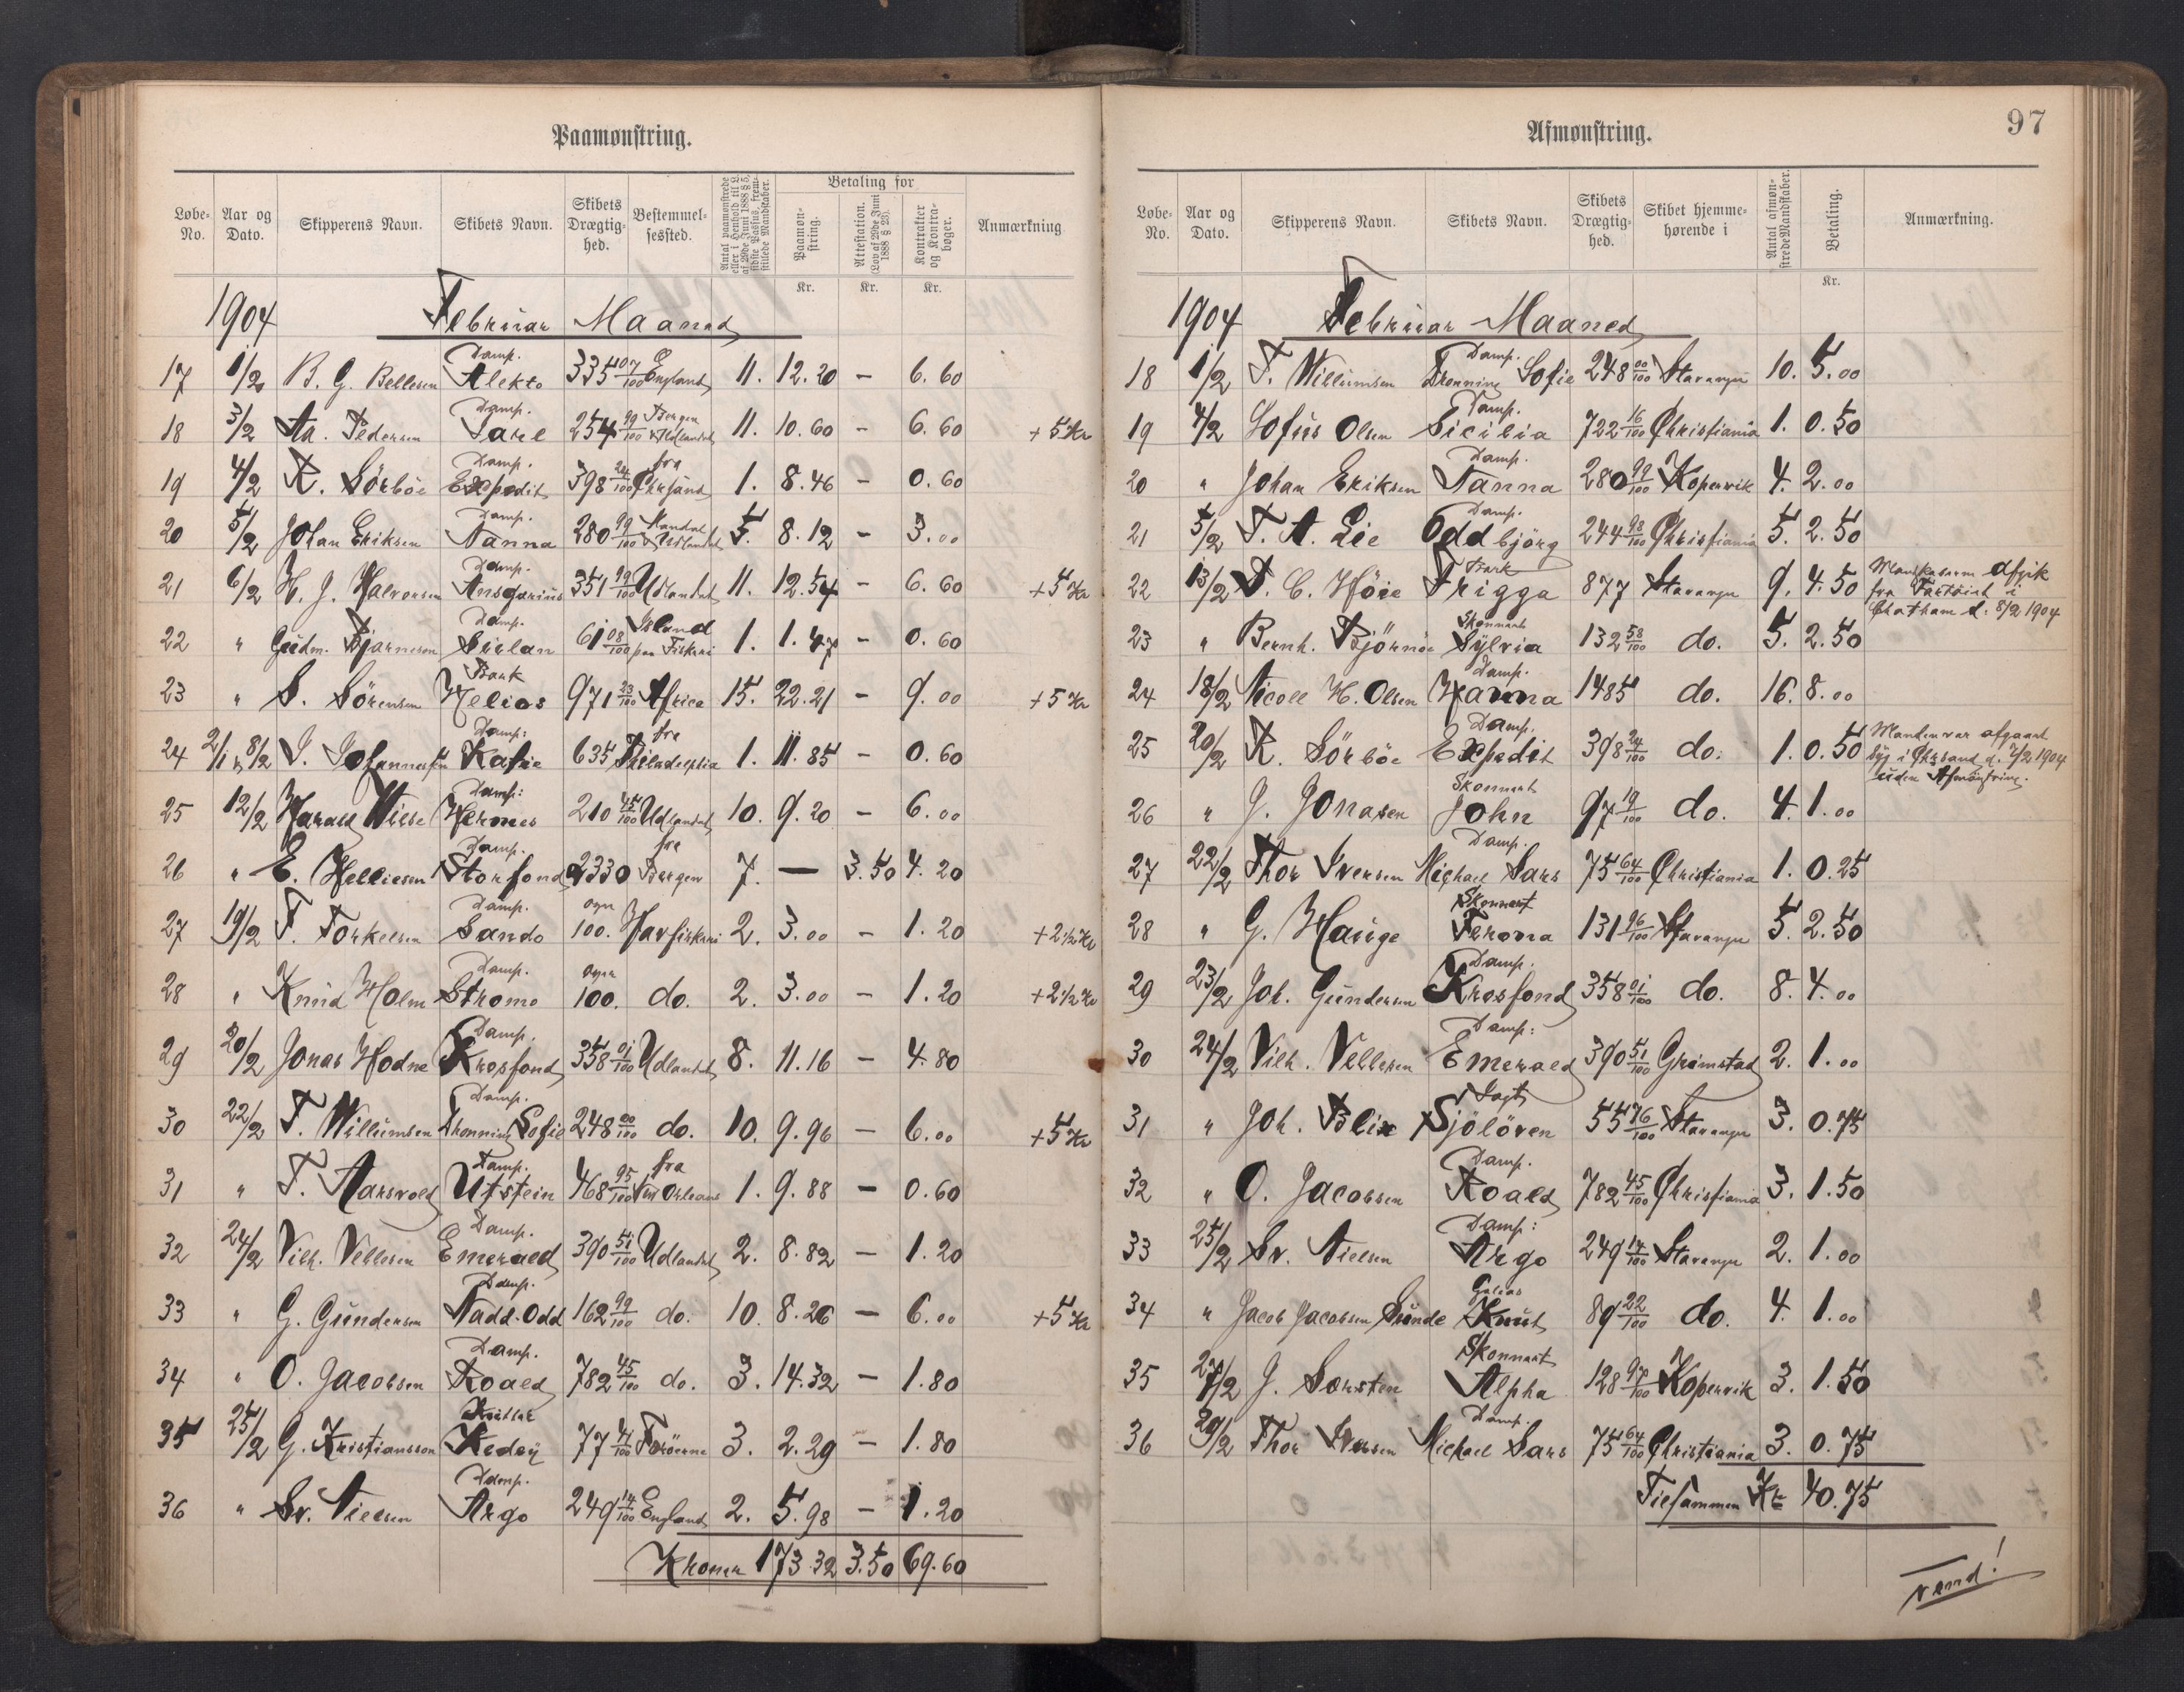 Paamønstring.
Løbe-No. Aar og Dato. Skipperens Navn. Skibets Navn. Skibets Drægtighed. Bestemmelsessted. Antal paamønstrede eller i Henhold til L. af 29de Juni 1888 § 5, sidste Passus, fremstillede Mandskaber. Betaling for Paamønstring. Attestation. (Lov af 29de Juni 1888 § 23). Kontrakter og Kontrabøger. Anmærkning
Kr. Kr. Kr.
1904 Februar Maaned
17 1/2 B. G. Bellesen Damp. Alekto 335 07/100 England 11. 12.20 – 6.60
18 3/2 Aa. Pedersen Damp. Jarl 254 99/100 Bergen & Udlandet 11. 10.60 – 6.60 + 5 Kr
19 4/2 K. Sörböe Damp. Expedit 398 24/100 fra Chrsand 1. 8.46 – 0.60
20 5/2 Johan Eriksen Damp. Nanna 280 99/100 Mandal & Udlandet 5. 8.12 – 3.00
21 6/2 H. J. Halvorsen Damp. Ansgarius 351 99/100 Udlandet 11. 12.54 – 6.60 + 5 Kr
22 " Gudm. Bjarneson Damp. Sirlan 61 08/100 Island paa Fiskeri 1. 1.47 – 0.60
23 " S. Sörensen Bark Helios 971 23/100 Africa 15. 22.21 – 9.00 + 5 Kr
24 2/1 & 8/2 J. Johannesen Damp: Kasie 635 fra Philadelphia 1. 11.85 – 0.60
25 12/2 Harald Wiese Damp: Hermes 210 45/100 Udlandet 10. 9.20 – 6.00
26 " E. Helliesen Damp. Storfond 2330 fra Bergen 7. — 3.50 4.20
27 19/2 T. Torkelsen Damp. Sando ogn 100. Havfiskeri 2. 3.00 – 1.20 + 2 1/2 Kr
28 " Knud Holm Damp. Stromo ogn 100. do. 2. 3.00 – 1.20 + 2 1/2 Kr
29 20/2 Jonas Hodne Damp. Krosfond 358 01/100 Udlandet 8. 11.16 – 4.80
30 22/2 T. Willumsen Damp. Dronning Sofie 248 00/100 do. 10. 9.96 – 6.00 + 5 Kr
31 " T. Aarsvold Damp. Utstein 468 95/100 fra New Orleans 1. 9.88 – 0.60
32 24/2 Vilh. Vellesen Damp. Emerald 390 51/100 Udlandet 2. 8.82 – 1.20
33 " G. Gundersen Damp. Nadd-Odd 162 99/100 do. 10. 8.26 – 6.00 + 5 Kr
34 " O. Jacobsen Damp. Roald 782 45/100 do. 3. 14.32 – 1.80
35 25/2 G. Kristiansson Kutter Kedey 77 41/100 Færöerne 3. 2.29 – 1.80
36 " Sv. Nielsen Damp. Argo 249 14/100 England 2. 5.98 – 1.20
Kroner 173.32 3.50 69.60
97
Afmønstring.
Løbe-No. Aar og Dato. Skipperens Navn. Skibets Navn. Skibets Drægtighed. Skibet hjemmehørende i Antal afmønstrede Mandskaber. Betaling. Anmærkning.
Kr.
1904 Februar Maaned
18 1/2 T. Willumsen Damp. Dronning Sofie 248 00/100 Stavanger 10. 5.00
19 4/2 Sofus Olsen Damp. Sicilia 722 16/100 Christiania 1. 0.50
20 " Johan Eriksen Damp. Nanna 280 99/100 Kopervik 4. 2.00
21 5/2 T. A. Lie Damp. Oddbjörg 244 98/100 Christiania 5. 2.50
22 13/2 T. C. Höie Bark Frigga 877 Stavanger 9. 4.50 Mandskaberne afgik fra Fartöiet i Chatham d. 8/2 1904
23 " Bernh. Björnöe Skonnert Sylvia 132 58/100 do. 5. 2.50
24 18/2 Nicoll H. Olsen Damp. Hanna 1485 do. 16. 8.00
25 20/2 K. Sörböe Damp. Expedit 398 24/100 do. 1. 0.50 Manden var afgaaet syg i Chrsand d. 7/2 1904 uden Afmönstring.
26 " G. Jonasen Skonnert John 97 19/100 do. 4. 1.00
27 22/2 Thor Iversen Damp. Michael Sars 75 64/100 Christiania 1. 0.25
28 " G. Hauge Skonnert Verona 131 96/100 Stavanger 5. 2.50
29 23/2 Joh. Gundersen Damp. Krosfond 358 01/100 do. 8. 4.00
30 24/2 Vilh. Vellesen Damp: Emerald 390 51/100 Grimstad 2. 1.00
31 " Joh. Blix Jagt Sjölöven 55 76/100 Stavanger 3. 0.75
32 " O. Jacobsen Damp. Roald 782 45/100 Christiania 3. 1.50
33 25/2 Sv. Nielsen Damp: Argo 249 14/100 Stavanger 2. 1.00
34 " Jacob Jacobsen Sunde Galeas Knut 89 22/100 do. 4. 1.00
35 27/2 J. Sørsten Skonnert Alpha 128 97/100 Kopervik 3. 1.50
36 29/2 Thor Iversen Damp. Michael Sars 75 64/100 Christiania 3. 0.75
Tilsammen Kr 40.75
vend!